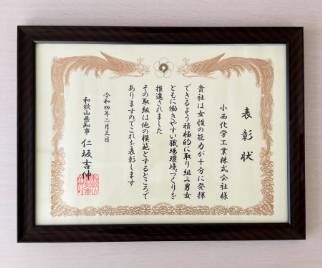 表彰状
小西化学工業株式会社様
貴社は女性の能力が十分に発揮
できるよう積極的に取り組み男女
ともに働きやすい職場環境づくりを
推進されました
その取組は他の模範とするところで
ありますのでこれを表彰します
令和四年二月三日
和歌山県知事 仁坂吉伸